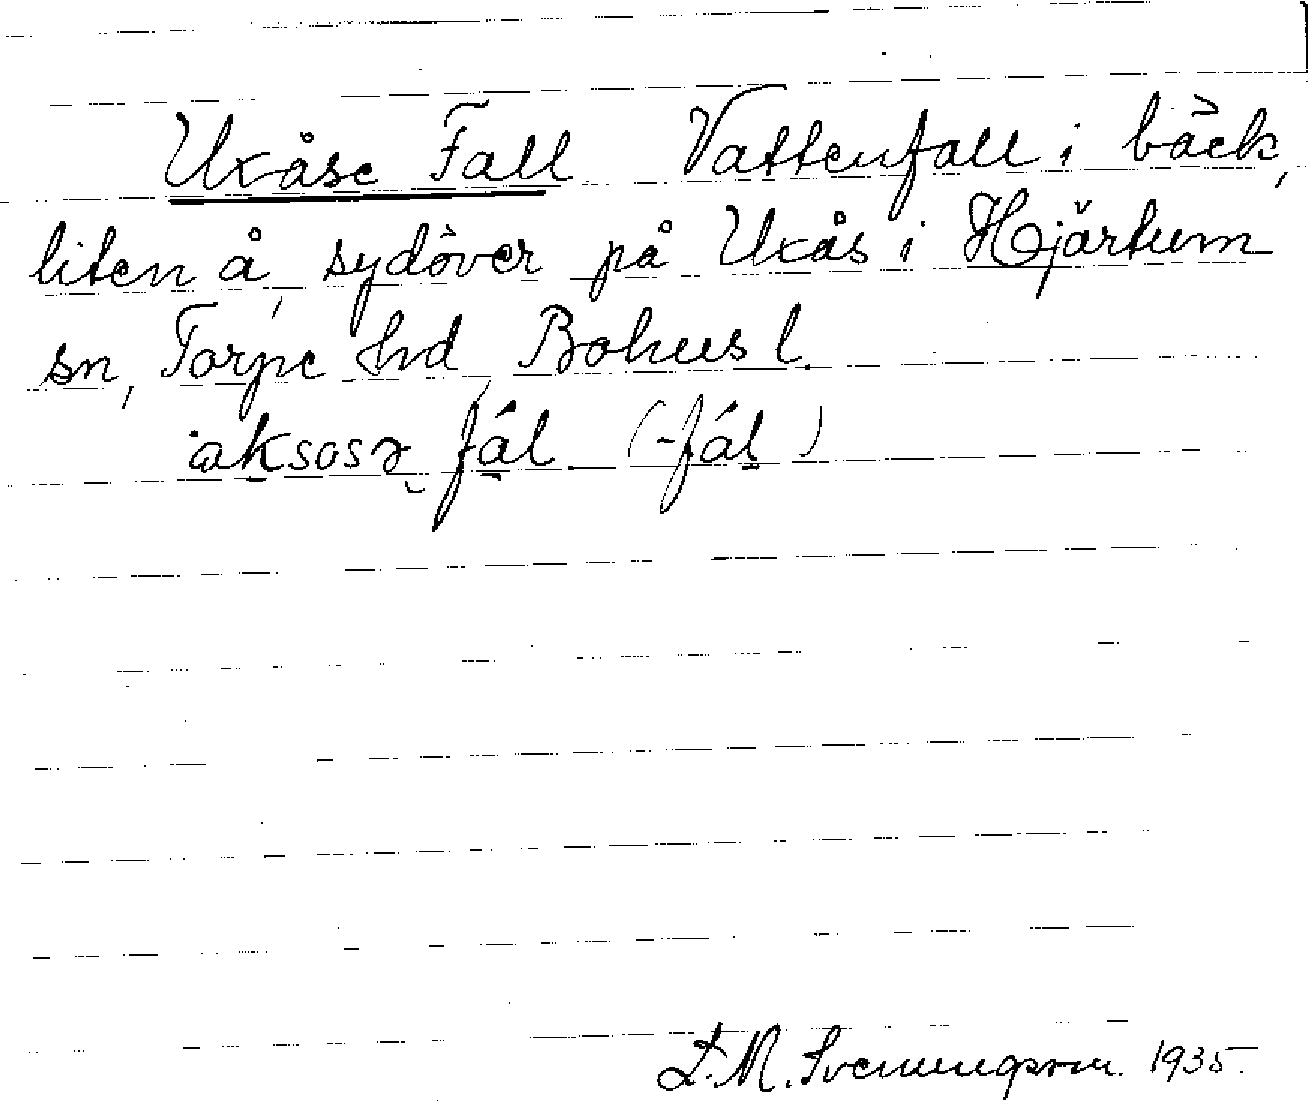 Uxåse Fall Vattenfall i bäck,
liten å, sydöver på Uxås i Hjärtum
sn, Torpe hd, Bohusl.
(-fál)
L. M. Svenungsson. 1935.